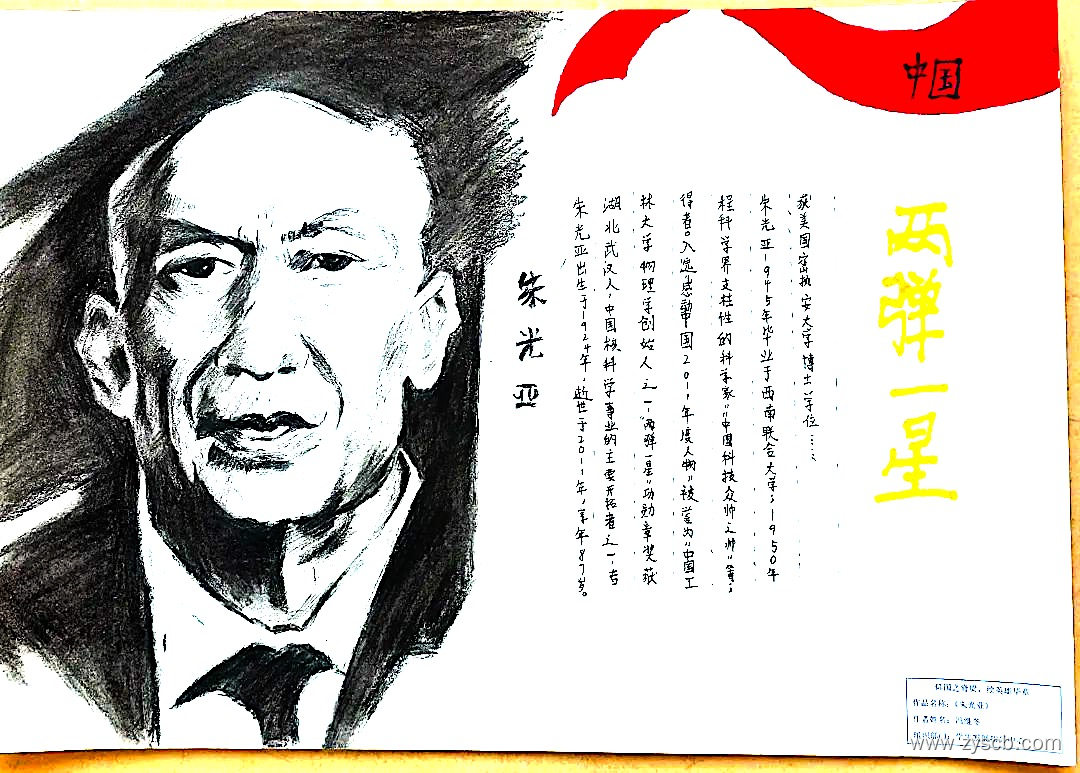 中国
两弹一星
朱光亚
朱光亚出生于1924年,逝世于2011年,享年87岁。
湖北武汉人,中国核科学事业的主要开拓者之一,吉
林大学物理学创始人之一,"两弹一星"功勋章奖获
得者。入选感动中国2011年度人物"被誉为"中国工
程科学界支柱性的科学家""中国科技众帅之帅"等;
朱光亚1945年毕业于西南联合大学;1950年
获美国密执安大学博士学位……
国之脊梁,绘英雄华章
作品名称:《朱光亚》
作者姓名:
www.zyscb.com